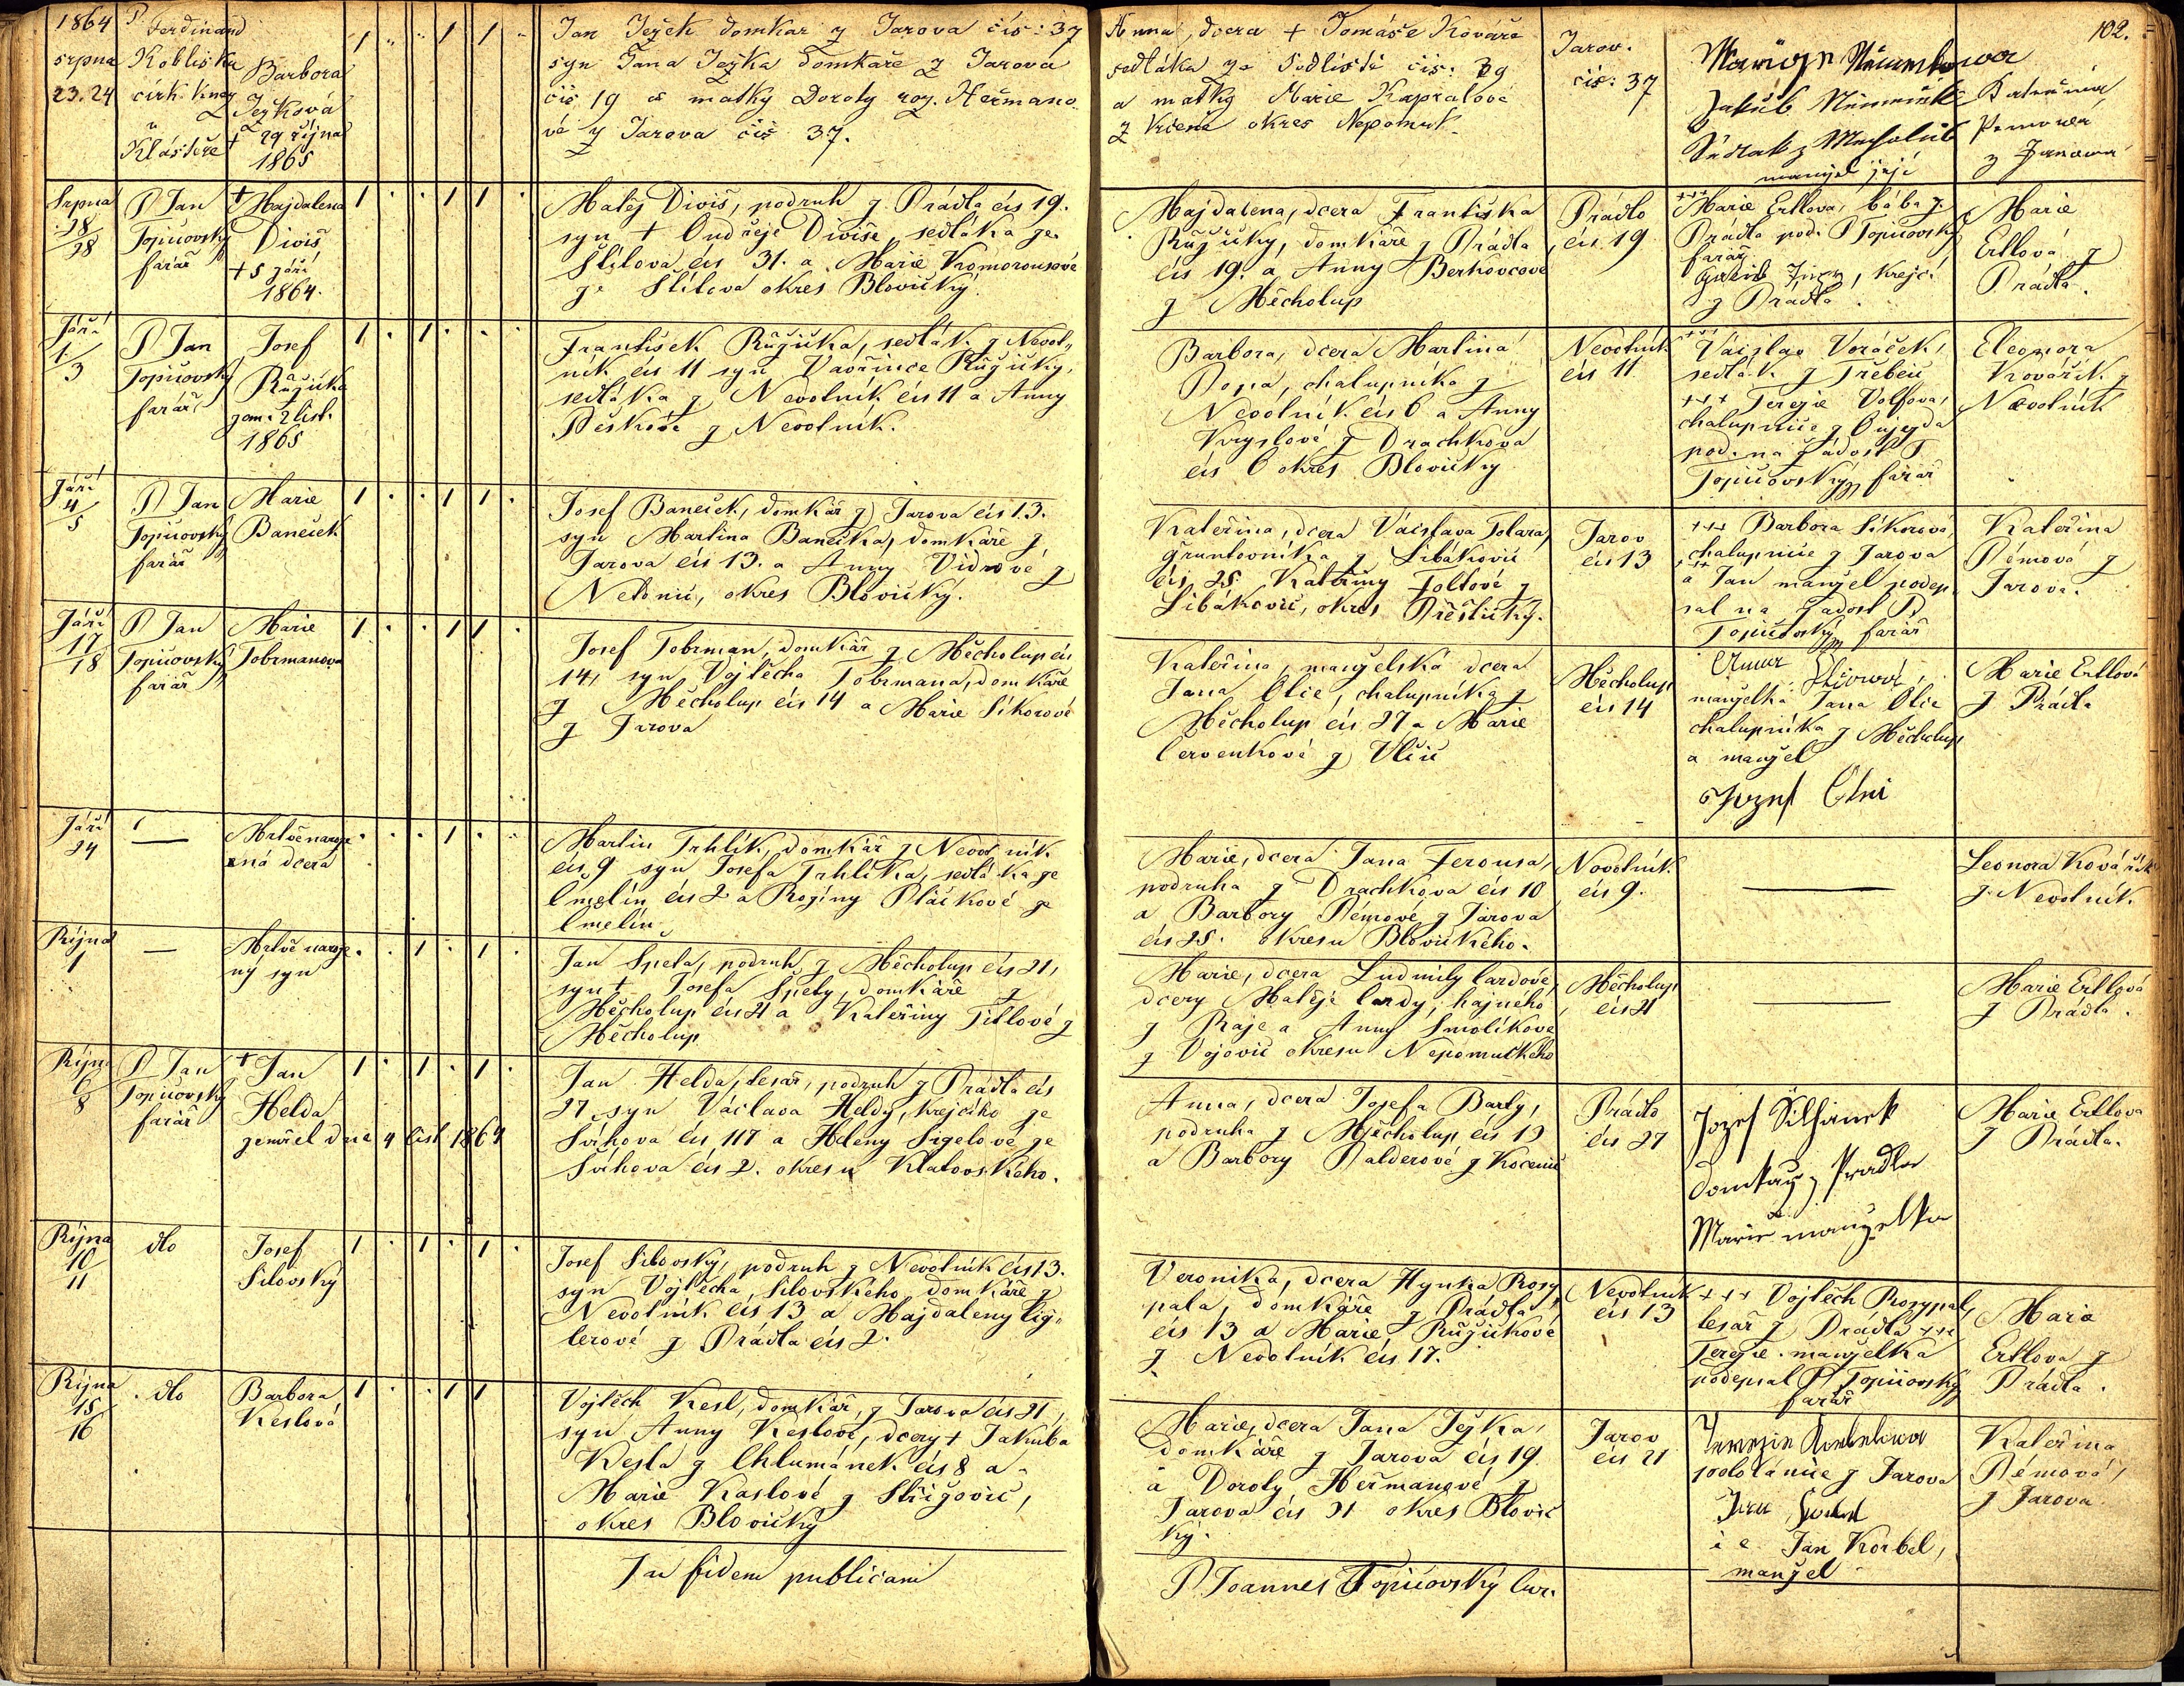 1864
srpna
23. 24
P.
Ferdinand
Kobliška
církKněz
v
Klášteře
Barbora
Ježková
† 29 října
1865
1 " " 1 1 "
Jan Ježek domkař z Jarova čís: 37
syn Jana Ježka domkaře z Jarova
čís 19 a matky Doroty roz. Heřmano
vé z Jarova čís 37.
Anna, dcera † Tomáše Kováře
sedláka ze Sedliště čís: 39
a matky Marie Kapralové
z Vrčeně okres Nepomuk.
Jarov.
čís: 37
102.
Jakub
manžel její
Kateřina
z Jarova
Srpna
28
28
P Jan
Topičovský
farář
† Majdalena
Diviš
† 5 září
1864.
1 . . 1 1 .
Matěj Diviš, podruh z Prádla čís 19.
syn † Ondřeje Diviše, sedláka ze
Štítova čís 31. a Marie Kromorousové
ze Štítova okres Blovický.
Majdalena, dcera Františka
Růžičky, domkáře z Prádla
čís 19. a Anny Berkovcové
z Měcholup
Prádlo
čís. 19
+++ Marie Ertlova, bába z
Prádla pod. P Topičovský
farář
krejčí
z Prádla.
Marie
Ertlová z
Prádla.
Září
1.
3
P Jan
Topičovský
farář
Josef
Růžička
zem. 2 list.
1865
1 . 1 . . .
František Růžička, sedlák z Nevot-
ník čís 11 syn Vavřince Růžičky,
sedláka z Nevotník čís 11 a Anny
Peškové z Nevotník.
Barbora, dcera Martina
Popa, chalupníka z
Nevotník čís 6 a Anny
z Drachkova
čís 6 okres Blovický
Nevotník
čís 11
+++ Václav Voráček,
sedlák z Třebčic
+++ Terezie Volfova,
chalupnice z Oujezda
pod. na žádost P.
Topičovský farář
Eleonora
Kovářík z
Nevotník
Září
4
5
P Jan
Topičovský
farář
Marie
Baneček
1 . . 1 1 .
Josef Baneček, domkář z Jarova čís 13.
syn Martina Banečka, domkáře z
Jarova čís 13. a Anny Vidrové z
Netonic, okres Blovický.
Kateřina, dcera Václava Tolara,
gruntovníka z Libákovic
čís 25. Kateřiny Foltové z
Libákovic, okres Přeštický.
Jarov
čís 13
+++ Barbora Sikorová,
chalupnice z Jarova
a +++ Jan manžel podep
sal na žádost P.
Topičovský farář
Kateřina
Pémová z
Jarova.
Září
17
18
P Jan
Topičovský
farář
Marie
Tobrmanova
1 . . 1 1 .
Josef Tobrman, domkář z Měcholup čís
14, syn Vojtěcha Tobrmana, domkáře
z Měcholup čís 14 a Marie Sikorové
z Jarova
Kateřina, manželská dcera
Jana Olie, chalupníka z
Měcholup čís 27 a Marie
Červenkové z Vlčic
Měcholup
čís 14
Anna
manželka Jana Olie
chalupníka z Měcholup
a manžel
Jozef
Marie Ertlová
z Prádla
Září
24
—
Mrtvě naroze
ná dcera
. . . 1 . .
Martin Trhlík, domkář z Nevotník
čís 9 syn Josefa Trhlíka, sedláka ze
Čmelín čís 2 a Rozíny Ptáčkové ze
Čmelín.
Marie, dcera Jana Ferousa,
podruha z Drachkova čís 10
a Barbory Pémové z Jarova
čís 25. okresu Blovického.
Nevotník
čís 9.
—
Leonora Kovářík
z Nevotník.
Října
1
—
Mrtvě naroze
ný syn
. . 1 . 1 .
Jan Špeta, podruh z Měcholup čís 21,
syn † Josefa Špety, domkáře z
Měcholup čís 21 a Kateřiny Titlové z
Měcholup
Marie, dcera Ludmily Čardové,
dcery Matěje Čardy, hajného
z Ráje a Anny Smolíkové
z Vojovic okresu Nepomuckého
Měcholup
čís 21
—
Marie Ertlová
z Prádla.
Října
6
8
P Jan
Topičovský
farář
† Jan
Helda
zemřel dne 4 list. 1864
1 . 1 . 1 .
Jan Helda, tesař, podruh z Prádla čís
27, syn Václava Heldy, krejčího ze
Švihova čís 117 a Heleny Sigelové ze
Švihova čís 2. okresu Klatovského.
Anna, dcera Josefa Barty,
podruha z Měcholup čís 13
a Barbory Balderové z Kocenic
Prádlo
čís 27
Jozef Silhánek
Domkář z Pradla
a
Marie manzelka
Marie Ertlova
z Prádla.
Října
10
11
dto
Josef
Silovský
1 . 1 . 1 .
Josef Silovský, podruh z Nevotník čís 13.
syn Vojtěcha Silovského domkáře z
Nevotník čís 13 a Majdaleny Cig-
lerové z Prádla čís 2.
Veronika, dcera Hynka Rosy
pala, domkáře z Prádla
čís 13 a Marie Růžičkové
z Nevotník čís 17.
Nevotník
čís 13
+++ Vojtěch Rosypal,
tesař z Prádla +++
Terezie manželka
podepsal P Topičovský
farář
Marie
Ertlova z
Prádla.
Října
15
16
dto
Barbora
Keslová
1 . . 1 1
Vojtěch Kesl, domkář, z Jarova čís 21,
syn Anny Keslové, dcery † Jakuba
Kesla z Chlumánek čís 8 a
Marie Kaslové z Střižovic,
okres Blovický
Marie, dcera Jana Ježka,
domkáře z Jarova čís 19.
a Doroty Heřmanové z
Jarova čís 21 okres Blovic
ký.
Jarov
čís 21
Terezie
z Jarova
i e Jan Korbel,
manžel
Kateřina
Pémová,
z Jarova
In fidem publicam
P Joannes Topičovský Cur.